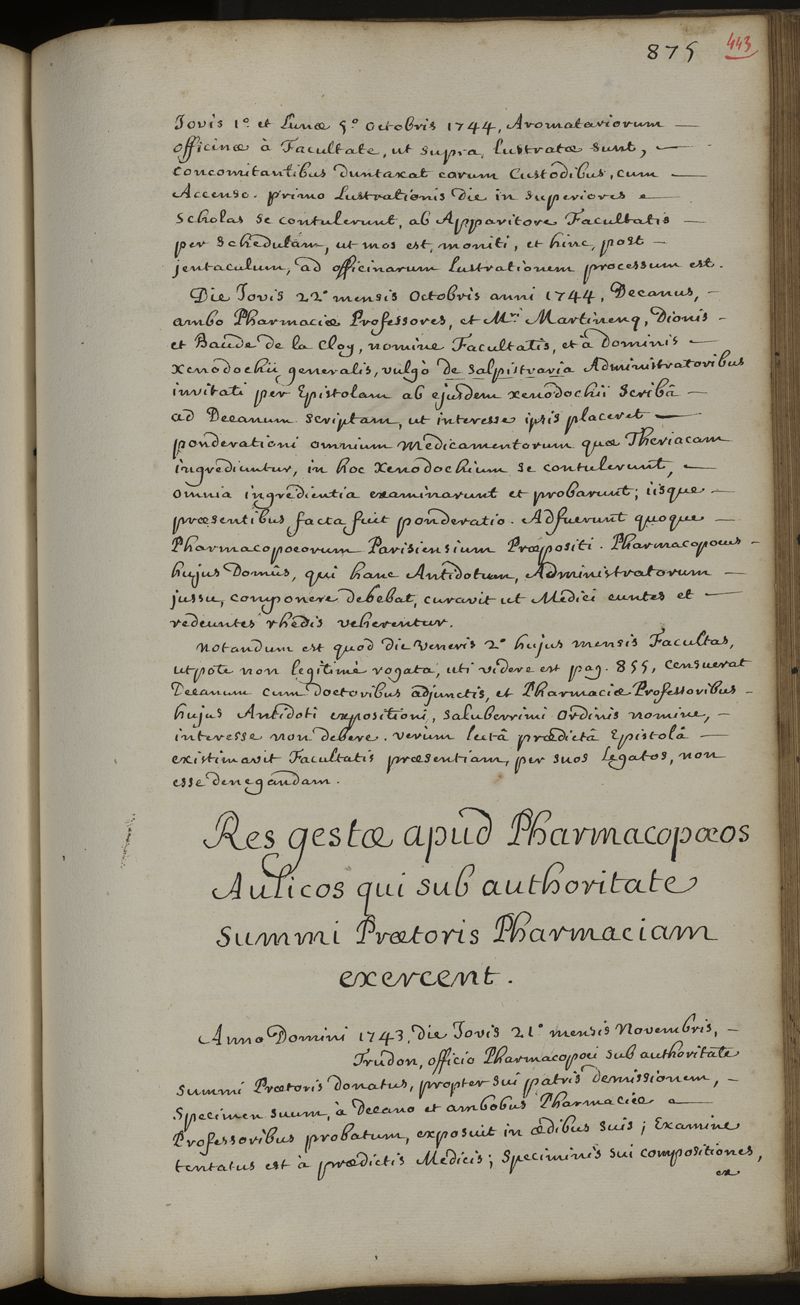 875 443
Jovis 1º et Lunæ 5º Octobris 1744, Aromatariorum —
officinæ à Facultate, ut supra, lustratæ sunt, —
concomitantibus duntaxat earum Custodibus, cum —
Accenso. primo Lustrationis die in superiores —
scholas se contulerunt, ab Apparitore Facultatis —
per schedulam, ut mos est, moniti, et hinc, post —
jentaculum, ad officinarum lustrationem processum est.
Die Jovis 22ª mensis Octobris anni 1744, Decanus, —
ambo Pharmaciæ Professores, et Mri Martinenq, Dionis —
et Baude de la Cloy, nomine Facultatis, et à Dominis —
Xenodochii generalis, vulgò de Salpistraria Administratoribus
invitati per Epistolam ab ejusdem xenodochii Scribâ —
ad Decanum scriptam, ut interesse ipsis placeret —
ponderationi omnium Medicamentorum quæ Theriacam
ingrediuntur, in hoc Xenodochium se contulerunt, —
omnia ingredientia examinarunt et probarunt; iisque —
præsentibus facta fuit ponderatio. Adfuerunt quoque —
Pharmacopoeorum Parisiensium Præpositi. Pharmacopoeus —
hujus Domûs, qui hanc Antidotum, Administratorum —
jussu, componere debebat, curavit ut Medici euntes et —
redeuntes rhedis veherentur.
Notandum est quod die Veneris 2ª hujus mensis Facultas,
utpote non legitimè rogata, uti videre est pag. 855, censuerat
Decanum cum doctoribus adjunctis, et Pharmaciæ Professoribus —
hujus Antidoti expositioni, saluberrimi Ordinis nomine, —
interesse non debere. verùm lectâ prædictâ Epistolâ —
existimavit Facultatis præsentiam, per suos Legatos, non
esse denegandam.
Res gestæ apud Pharmacopæos
Aulicos qui sub authoritate
summi Prætoris Pharmaciam
exercent.
Anno Domini 1743, die Jovis 21º mensis Novembris, —
Trudon, officio Pharmacopoei sub authoritate
summi Prætoris donatus, propter sui patris demissionem, —
Specimen suum, à Decano et ambobus Pharmaciæ —
Professoribus probatum, exposuit in ædibus suis; Examine
tentatus est à prædictis Medicis; Speciminis sui compositiones,
ex